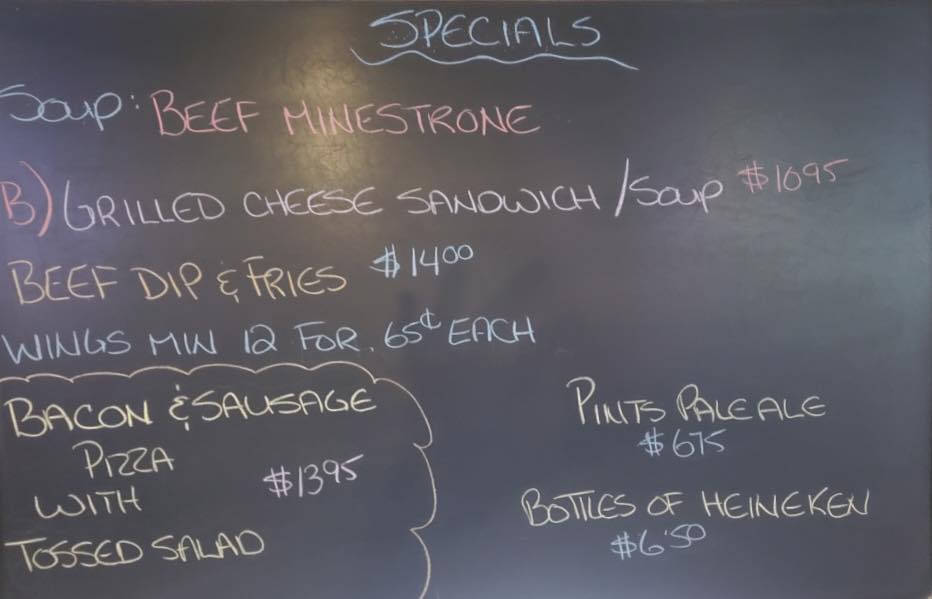 SPECIALS
SOUP: BEEF MINESTRONE
B) GRILLED CHEESE SANDWICH / SOUP $1095
BEEF DIP & FRIES $1400
WINGS MIN 12 FOR. 65¢ EACH
BACON & SAUSAGE
PIZZA
WITH $1395
TOSSED SALAD
PINTS PALE ALE
$675
BOTTLES OF HEINEKEN
$6.50